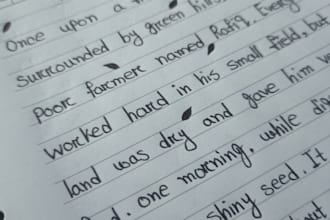 Once upon a
surrounded by green hills
poor farmer named Rafiq. Every
worked hard in his small field, but
land was dry and gave him
. one morning, while
shiny seed. It